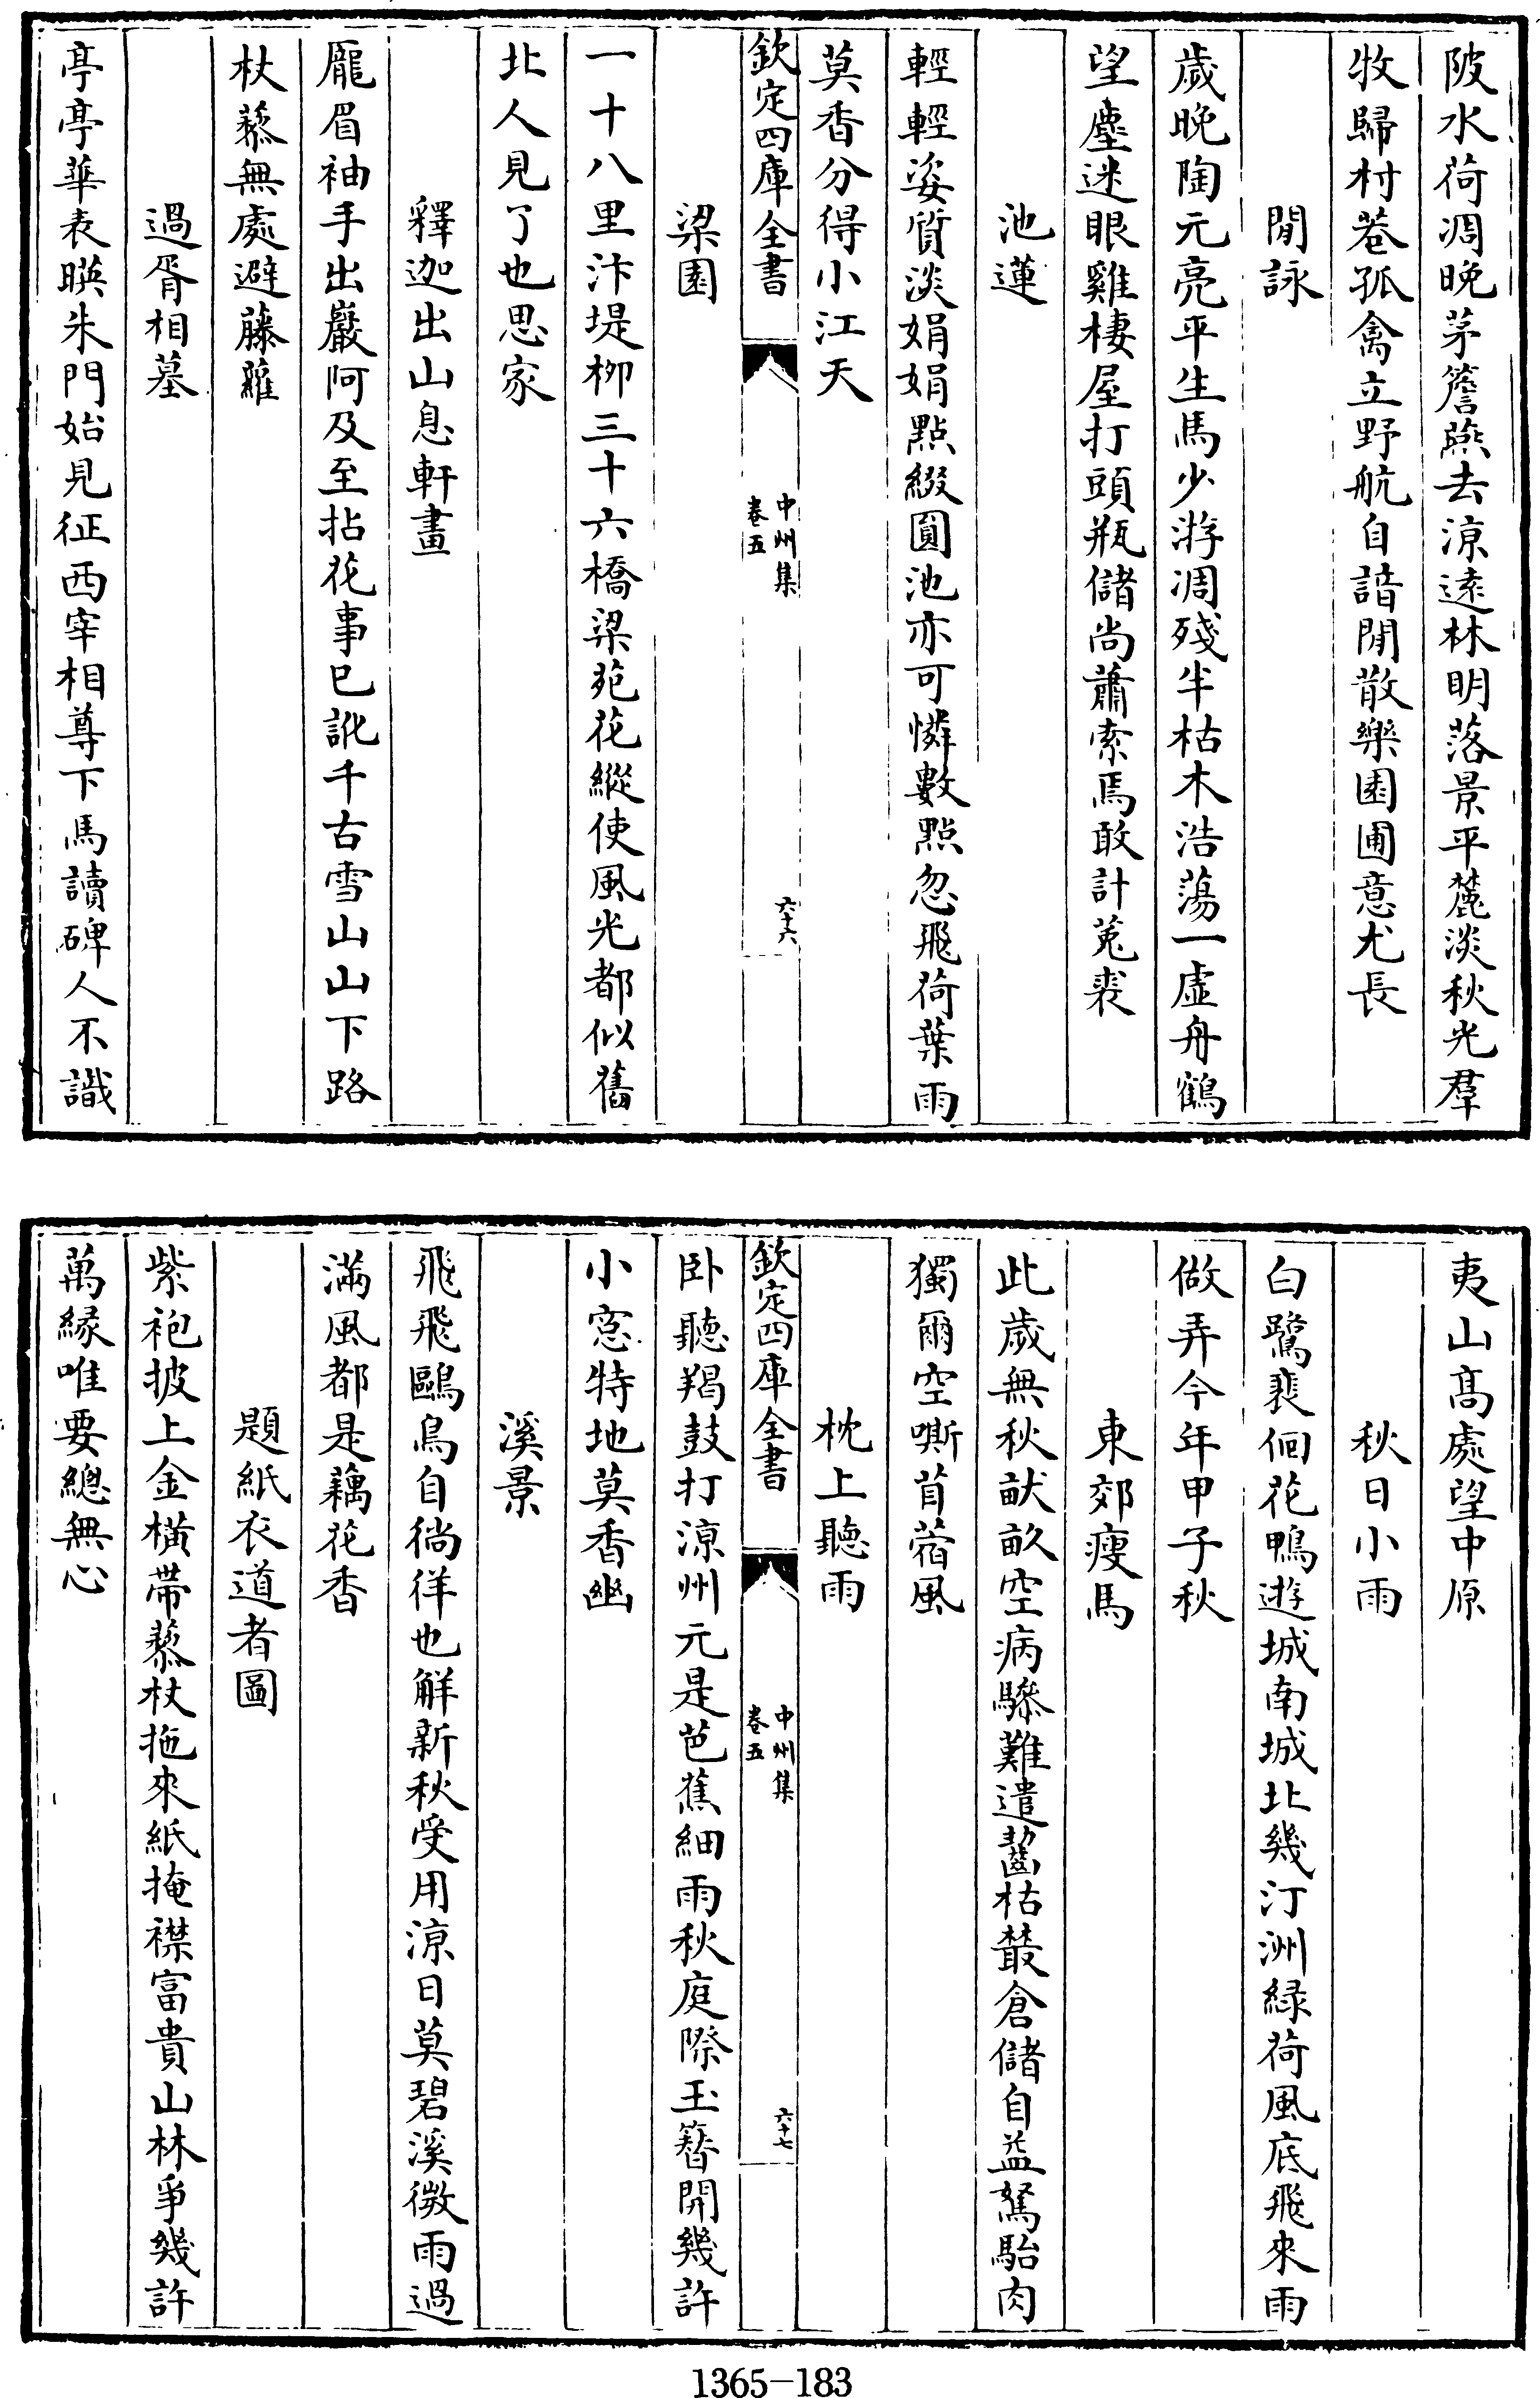 陂水荷凋晚茅簷燕去涼遠林明落景平麓淡秋光羣
牧歸村巷孤禽立野航自諳閒散樂園圃意尤長
閒詠
歲晚陶元亮平生馬少游凋殘半枯木浩蕩一虛舟鶴
望塵迷眼雞棲屋打頭瓶儲尚蕭索焉敢計菟裘
池蓮
輕輕姿質淡娟娟點綴圓池亦可憐數點忽飛荷葉雨
莫香分得小江天
欽定四庫全書
中州集
卷五
六十六
梁園
一十八里汴堤柳三十六橋梁苑花縱使風光都似舊
北人見了也思家
釋迦出山息軒畫
龐眉袖手出巖阿及至拈花事已訛千古雪山山下路
杖藜無處避藤蘿
過胥相墓
亭亭華表暎朱門始見征西宰相尊下馬讀碑人不識
夷山髙處望中原
秋日小雨
白鷺裴佪花鴨遊城南城北幾汀洲緑荷風底飛來雨
做弄今年甲子秋
東郊瘦馬
此歲無秋畎畝空病驂難遣齧枯叢倉儲自益駑駘肉
獨爾空嘶苜蓿風
枕上聽雨
欽定四庫全書
中州集
卷五
六十七
卧聽羯鼓打涼州元是芭蕉細雨秋庭際玉簪開幾許
小窓特地莫香幽
溪景
飛飛鷗鳥自徜徉也解新秋受用涼日莫碧溪微雨過
滿風都是藕花香
題紙衣道者圖
紫袍披上金横帶藜杖拖來紙掩襟富貴山林爭幾許
萬緣唯要總無心
1365-183